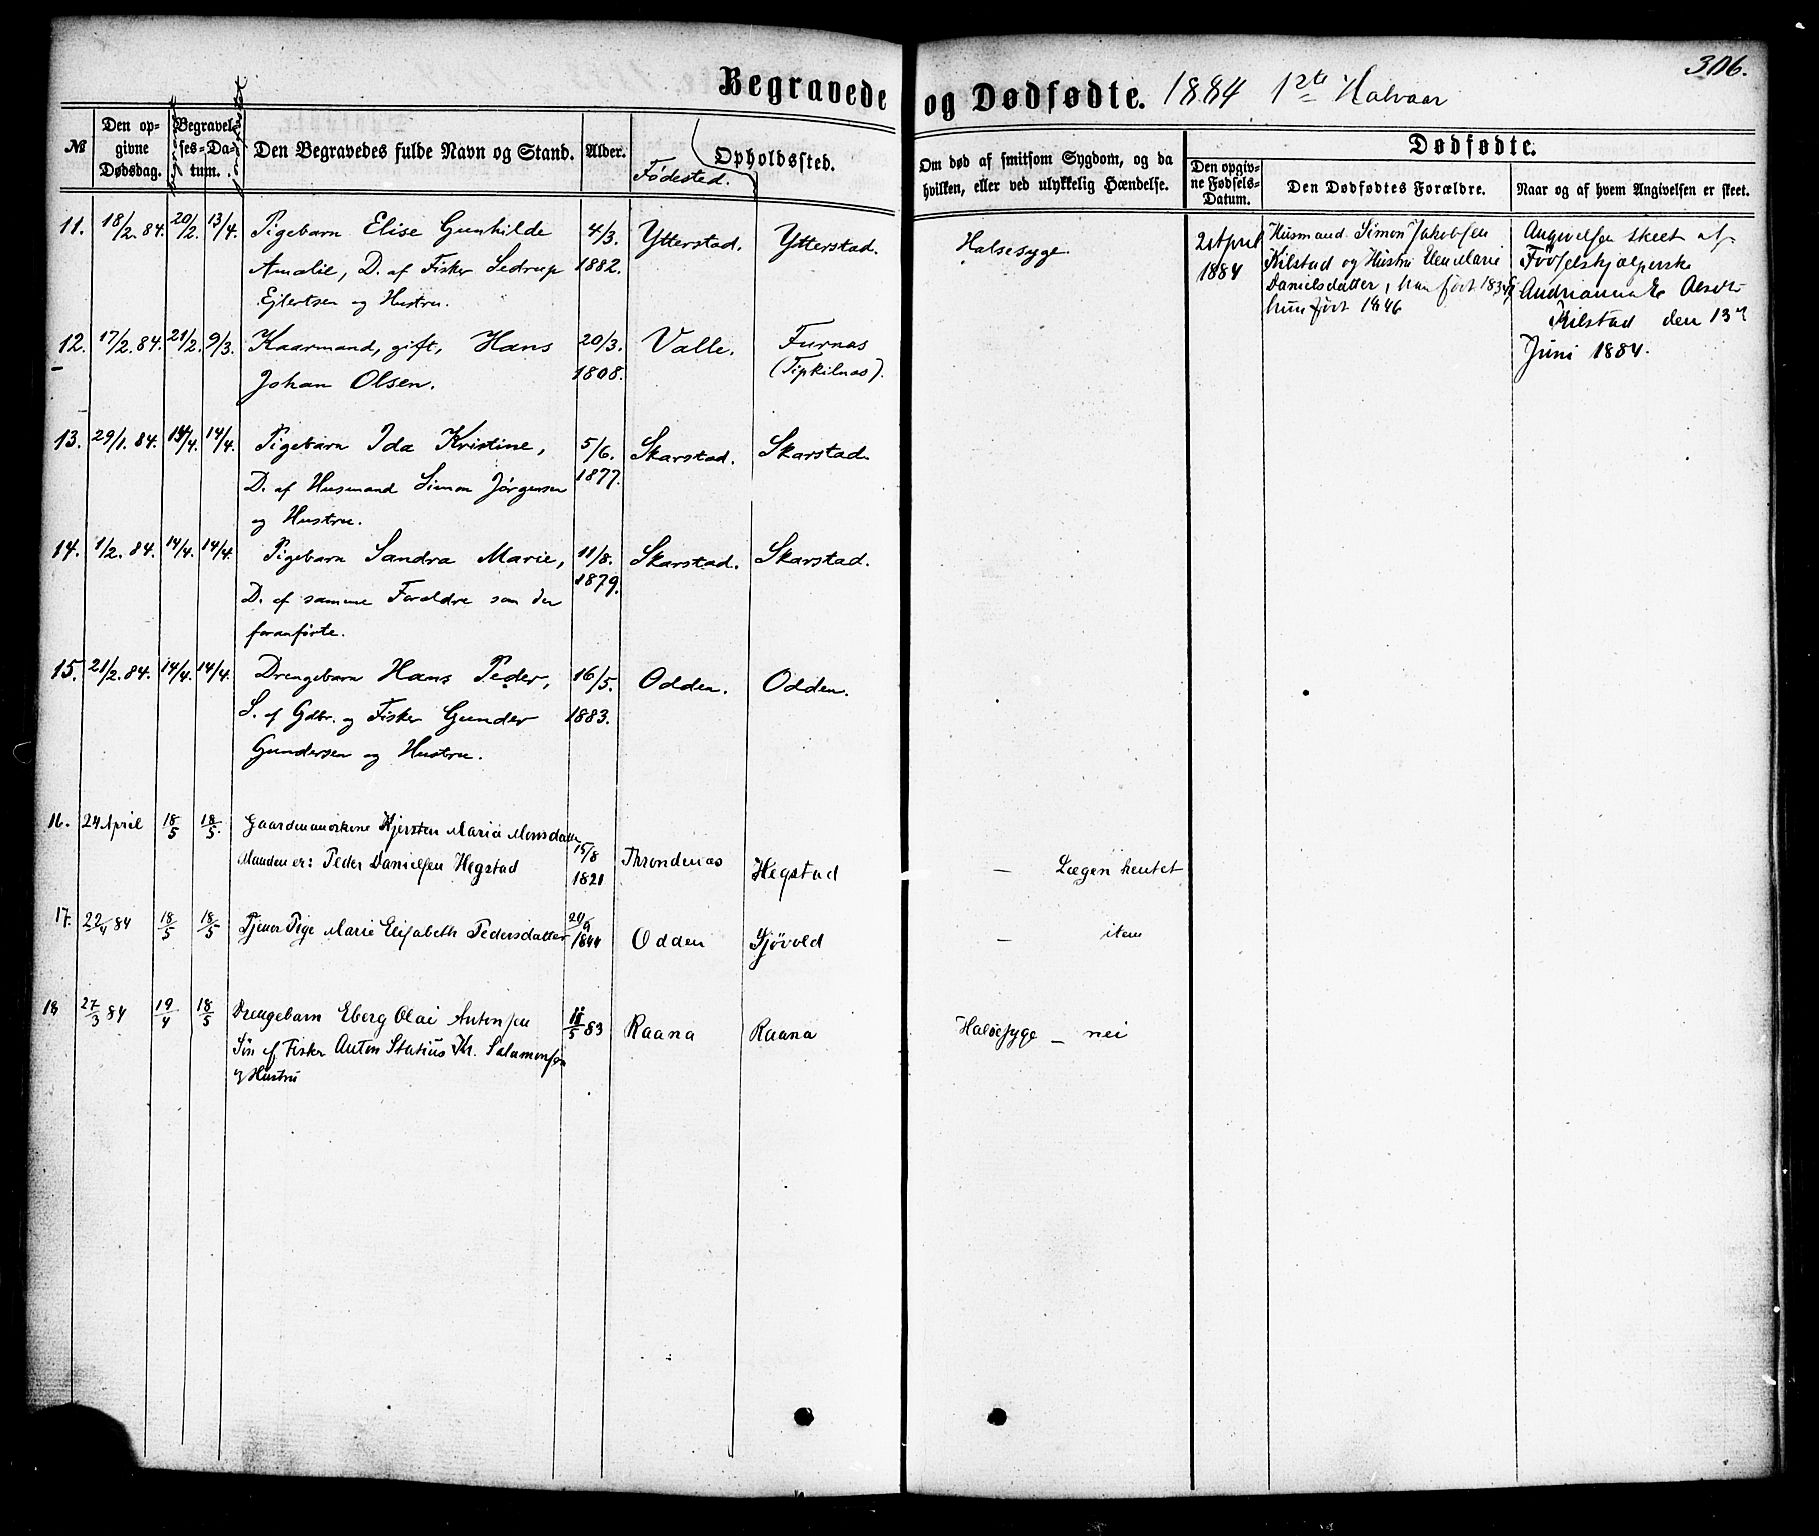 306.
Begravede og Dødfødte. 1884 1ste Halvaar
№
Den op-
givne
Dødsdag.
Begravel-
ses-Da-
tum.
Den Begravedes fulde Navn og Stand.
Alder.
Fødested.
Opholdssted.
Om død af smitsom Sygdom, og da
hvilken, eller ved ulykkelig Hændelse.
Dødfødte.
Den opgiv-
ne Fødsels-
Datum.
Den Dødfødtes Forældre.
Naar og af hvem Angivelsen er skeet.
11. 18/2. 84. 20/2. 13/4. Pigebarn Elise Gunhilde 4/3. Ytterstad. Ytterstad. Halsesyge
Amalie, D. af Fisker Sedrup 1882.
Ejlertsen og Hustru.
12. 17/2. 84. 21/2. 9/3. Kaarmand, gift, Hans 20/3. Valle. Furnas
Johan Olsen. 1808. (Tipkilnas).
13. 29/1. 84. 14/4. 14/4. Pigebarn Ida Kristine, 5/6. Skarstad. Skarstad.
D. af Husmand Simon Jørgensen 1877.
og Hustru.
14. 1/2. 84. 14/4. 14/4. Pigebarn Sandra Marie, 11/8. Skarstad. Skarstad.
D. af samme Forældre som den 1879.
foranførte.
15. 21/2. 84. 14/4. 14/4. Drengebarn Hans Peder, 16/5. Odden. Odden.
S. af Gdbr. og Fisker Gunder 1883.
Gundersen og Hustru.
16. 24 April 18/5 18/5. Kjersten Maria Monsdatter 15/8
Manden er: Peder Danielsen Hegstad 1821 Throndenas Hegstad — Lægen hentet
17. 22/4 84 18/5 18/5 Tjener Pige Marie Elisabeth Pedersdatter 1844 Odden — item
18 27/3 84 19/4 18/5 Drengebarn Eberg Olai Antonsen 11/5 83 Raana Raana Halsesyge — nei
Søn af Fisker Anton Statius Kr. Salamonsen
og Hustru
2 April
1884
Husmand Simon Jakobsen
Kilstad og Hustru Marie
Danielsdatter, han født 1834
hun født 1846
Angivelsen skeet af
Fødselshjælperske
Andrianna
Kilstad den 13de
Juni 1884.